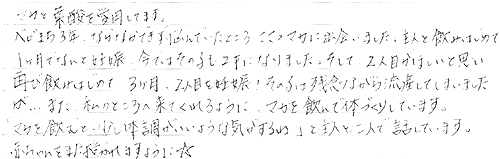 マカと葉酸を愛用してます。
ベビまち3年、なかなかできず悩んでいたところここのマカに出会いました。主人と飲みはじめて
1ヶ月でなんと妊娠、今ではその子も2才になりました。そして、2人目がほしいと思い
再び飲みはじめて、3ヶ月、2人目を妊娠!その子は残念ながら流産してしまいました
が…また、私のところへ来てくれるように、マカを飲んで体づくりしています。
「マカを飲むと、少し体調がいいような気がするね」と主人と二人で話しています。
赤ちゃんをまた授かれますように☆